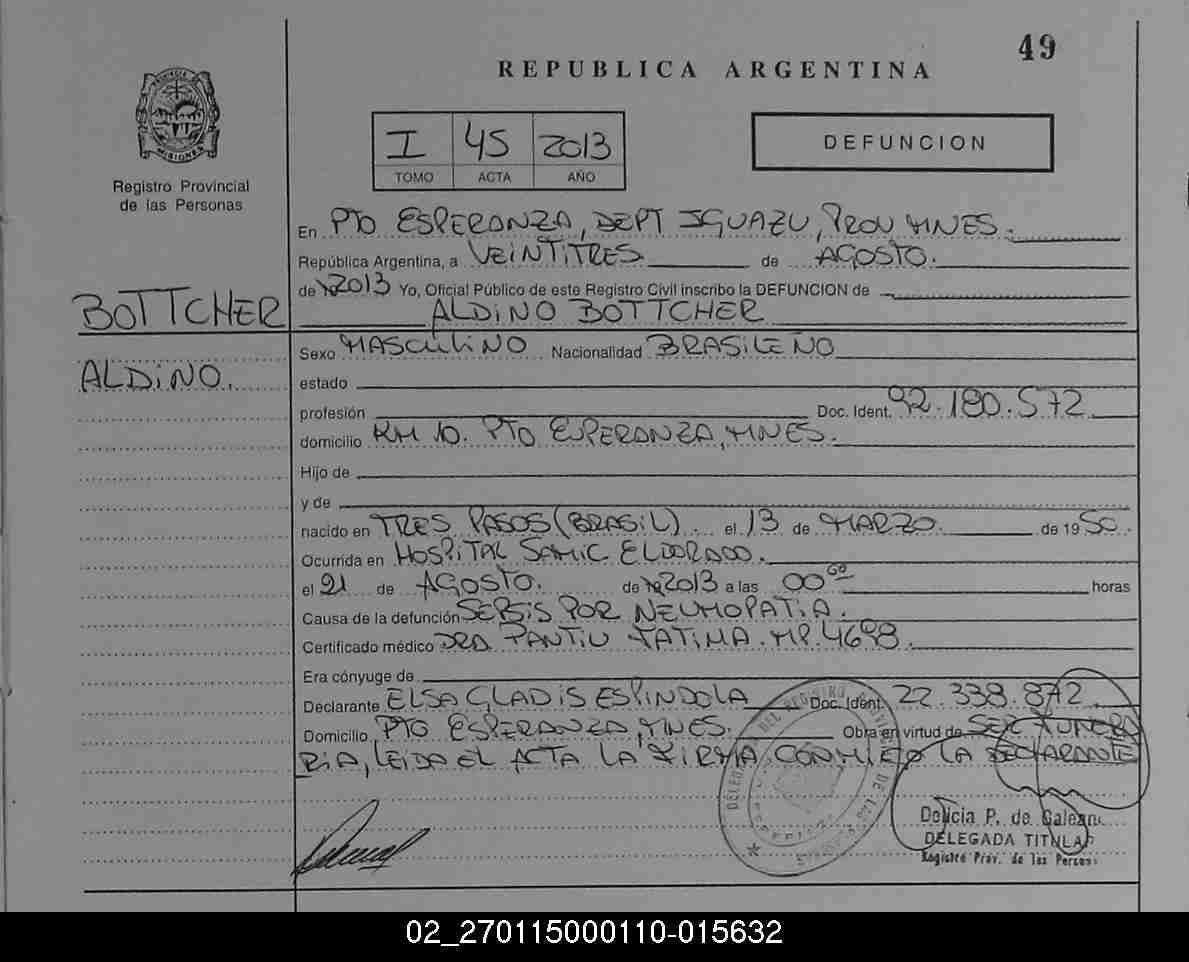 49
REPUBLICA ARGENTINA
PROVINCIA DE
MISIONES
Registro Provincial
de las Personas
I 45 2013
TOMO ACTA AÑO
DEFUNCION
En PTO ESPERANZA, DEPT IGUAZU, PROV MNES.
República Argentina, a VEINTITRES de AGOSTO.
de 2013 Yo, Oficial Público de este Registro Civil inscribo la DEFUNCION de
BOTTCHER ALDINO BOTTCHER
Sexo MASCULINO Nacionalidad BRASILEÑO
ALDINO.
estado
profesión Doc. Ident. 92.180.572
domicilio KM 10. PTO ESPERANZA, MNES.
Hijo de
y de
nacido en TRES PASOS (BRASIL). el 13 de MARZO. de 1950.
Ocurrida en HOSPITAL SAMIC ELDORADO.
el 21 de AGOSTO. de 2013 a las 00 horas
Causa de la defunción SEPSIS POR NEUMOPATIA.
Certificado médico DRA. FATIMA. MP. 4698.
Era cónyuge de
Declarante ELSA GLADIS ESPINDOLA Doc. Ident. 22.338.872.
Domicilio PTO ESPERANZA, MNES. Obra en virtud de SER
RIA, LEIDA EL ACTA LA FIRMA CONMIGO LA DECLARANTE
P. de
DELEGADA TITULAR
Registro Prov. de las Personas
02_270115000110-015632